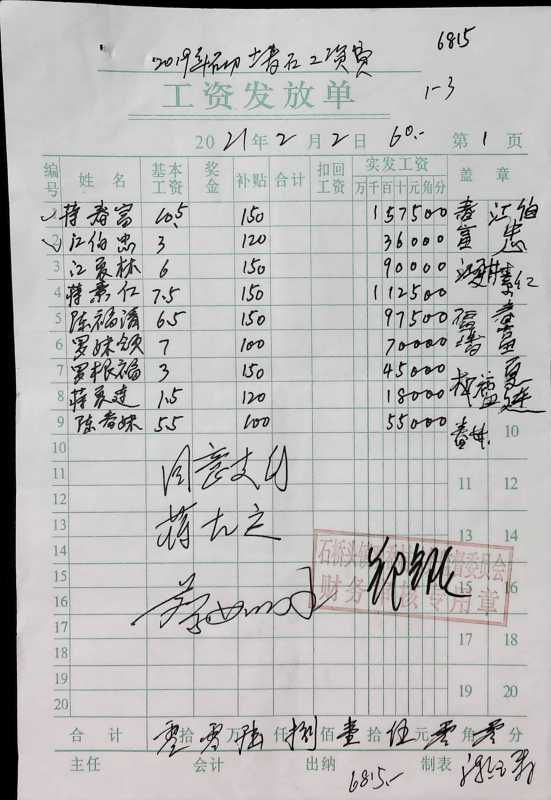 6815
2019年 石工资费
1-3
工资发放单
2021年2月2日 60.- 第1页
编号 姓名 基本工资 奖金 补贴 合计 扣回工资 实发工资 盖章
万千百十元角分
1 蒋春富 10.5 150 157500 春富 江伯忠
2 江伯忠 3 120 36000
3 江夏林 6 150 90000
4 蒋素仁 7.5 150 112500
5 陈福清 6.5 150 97500
6 罗妹颂 7 100 70000
7 罗根福 3 150 45000
8 蒋夏连 1.5 120 18000
9 陈春妹 5.5 100 55000 春妹 10
10
11 同意支付 11 12
12
13 13 14
14 石桥头镇 委员会
15 财务 专用章 15 16
16
17 17 18
18
19 19 20
20
合计 零拾零万陆仟捌佰壹拾伍元零角零分
主任 会计 出纳 6815.- 制表